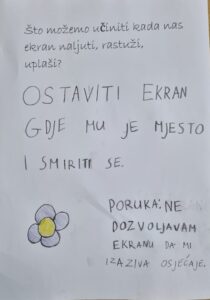 Što možemo učiniti kada nas
ekran naljuti, rastuži,
uplaši?
OSTAVITI EKRAN
GDJE MU JE MJESTO
I SMIRITI SE.
PORUKA: NE
DOZVOLJAVAM
EKRANU DA MI
IZAZIVA OSJEĆAJE.